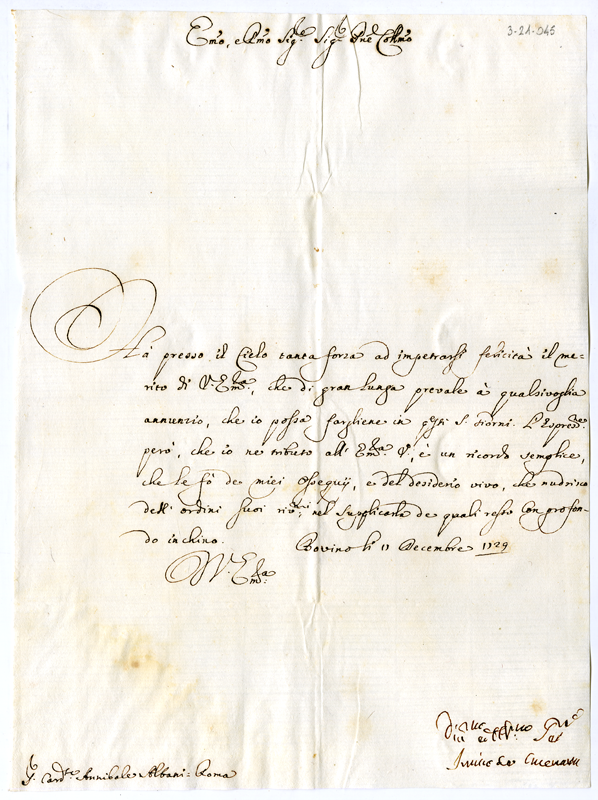 3-21-045
Emo, e Rmo Sigr. Sigr. Pne Collmo
Hà presso il Cielo tanta forza ad impetrargli felicità il me-
rito di V. Emza, che di gran lunga prevale à qualsivoglia
annunzio, che io possa fargliene in qsti S. Giorni. L'Espresne
però, che io ne tributo all' Emza V., è un ricordo semplice,
che le fò de miei Ossequij, e del desiderio vivo, che nudrisco
dell' ordini suoi rivti, nel supplicarla de quali resto con profon-
do inchino. Bovino li 11 Decembre 1729
Di V. Emza
S. Cardle Annibale Albani - Roma